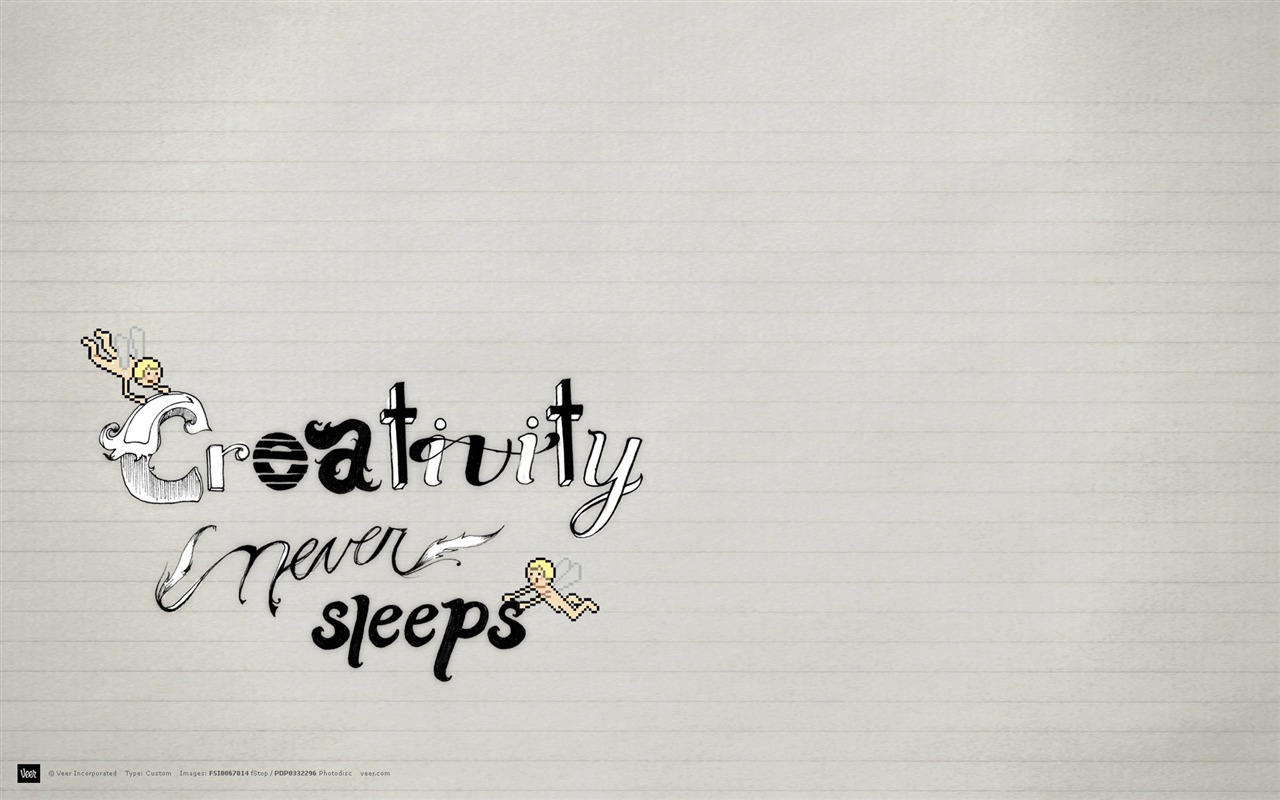 Creativity
never
sleeps
Veer © Veer Incorporated Type: Custom Images: FSI0067014 fStop / PDP0332296 Photodisc veer.com